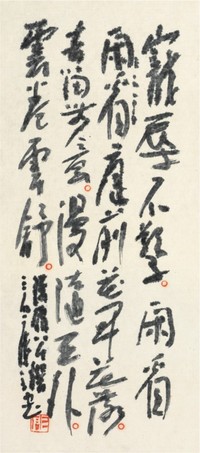 寵辱不驚閑看
閑看庭前花開花落
去留無意漫隨天外
雲卷雲舒